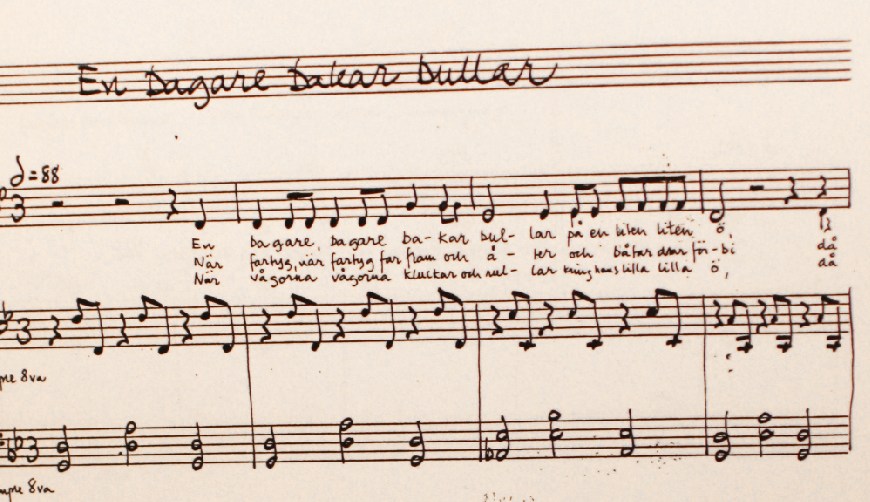 En Bagare Bakar Bullar
=88
En bagare, bagare ba-kar bul-lar på en liten liten ö,
När fartyg, när fartyg far fram och å-ter och båtar drar för-bi då
När vågorna vågorna kluckar och rul-lar kring hans lilla lilla ö, då
3
3
mpre 8va
3
mpre 8va